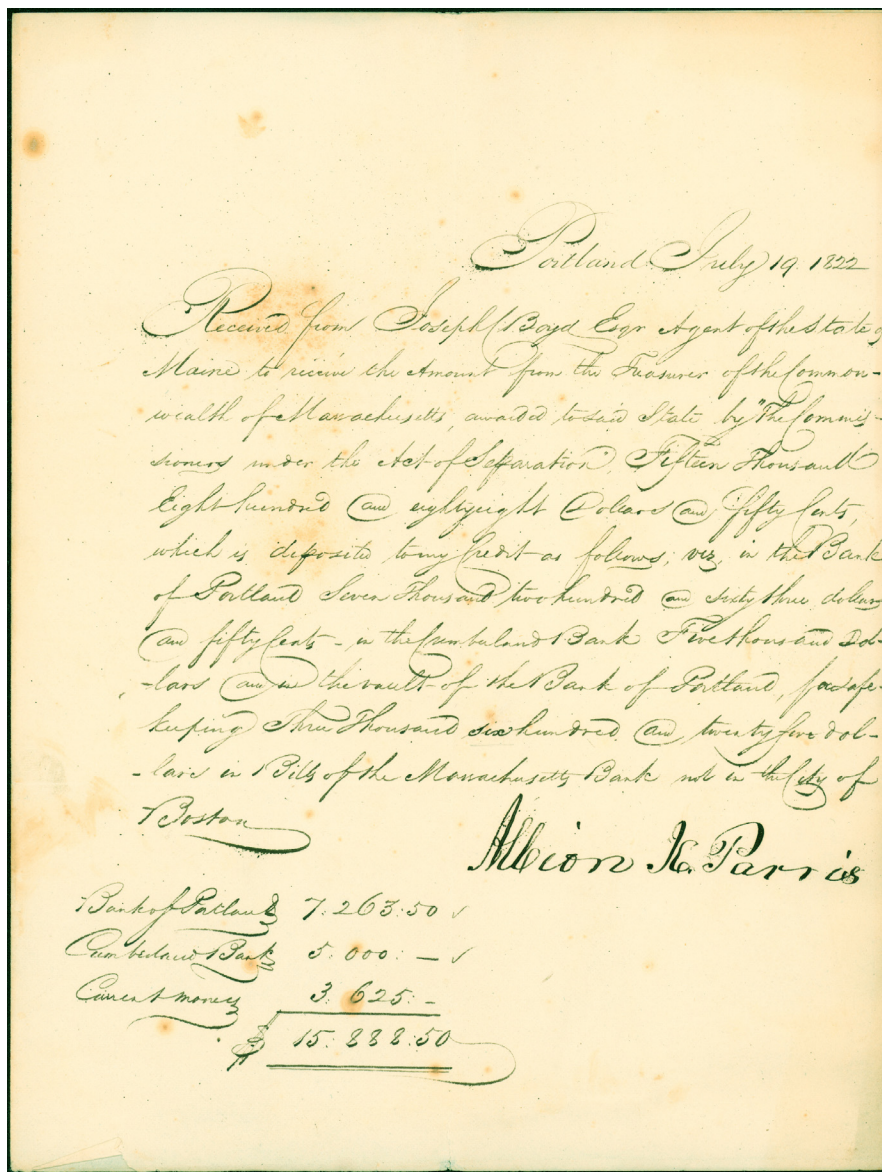 Portland July 19. 1822
Received from Joseph C Boyd Esqr Agent of the State of
Maine to receive the Amount from the Treasurer of the Common-
wealth of Massachusetts, awarded to said State by "The Commis-
sioners under the Act of Separation", Fifteen Thousand
Eight hundred and eightyeight Dollars and fifty Cents,
which is deposited to my Credit as follows; viz, in the Bank
of Portland Seven Thousand two hundred and sixty three dollars
and fifty Cents - in the Cumberland Bank Five thousand Dol-
-lars and in the vault of the Bank of Portland, for safe
keeping Three Thousand six hundred and twenty five dol-
-lars in Bills of the Massachusetts Bank not in the City of
Boston
Albion K. Parris
Bank of Portland 7:263:50 ✓
Cumberland Bank 5:000:— ✓
Current money 3:625:-
$ 15:888:50